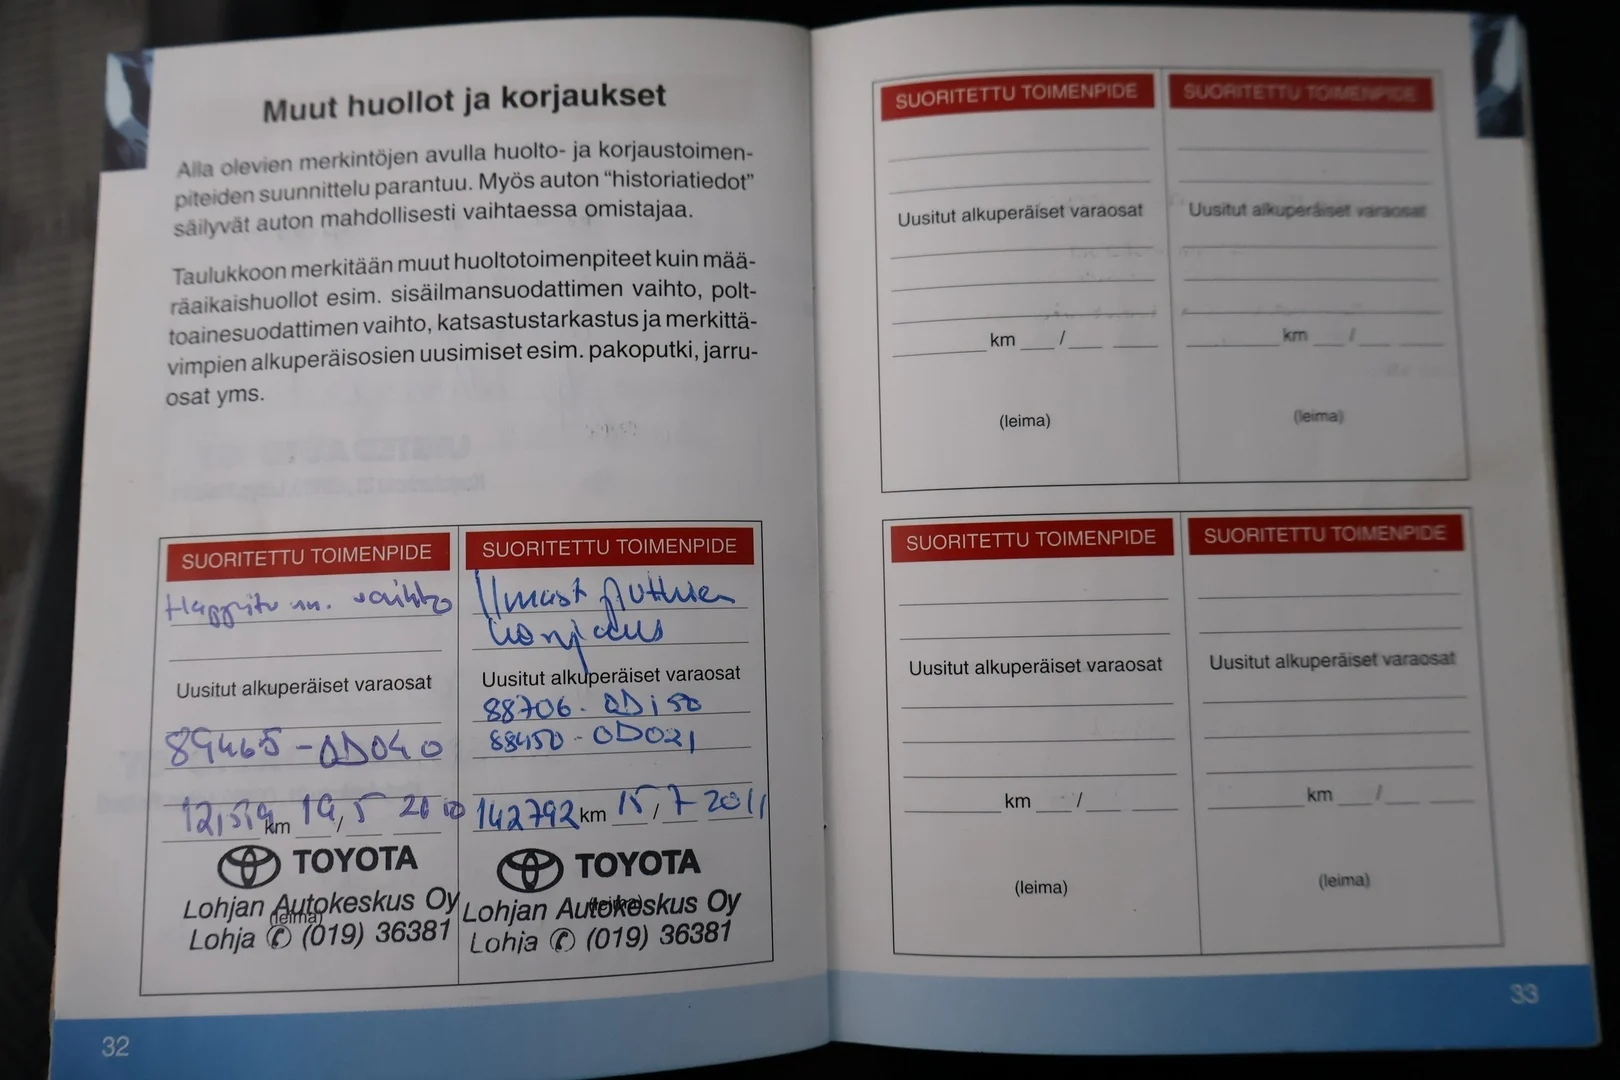 Muut huollot ja korjaukset
Alla olevien merkintöjen avulla huolto- ja korjaustoimen-
piteiden suunnittelu parantuu. Myös auton “historiatiedot”
säilyvät auton mahdollisesti vaihtaessa omistajaa.
Taulukkoon merkitään muut huoltotoimenpiteet kuin mää-
räaikaishuollot esim. sisäilmansuodattimen vaihto, polt-
toainesuodattimen vaihto, katsastustarkastus ja merkittä-
vimpien alkuperäisosien uusimiset esim. pakoputki, jarru-
osat yms.
SUORITETTU TOIMENPIDE
vaihto
Uusitut alkuperäiset varaosat
89465-0D040
km 19/5 2010
TOYOTA
Lohjan Autokeskus Oy
(leima)
Lohja ✆ (019) 36381
SUORITETTU TOIMENPIDE
Ilmast putkien
korjaus
Uusitut alkuperäiset varaosat
88706-0D150
88450-0D021
142792 km 15/7 2011
TOYOTA
Lohjan Autokeskus Oy
(leima)
Lohja ✆ (019) 36381
32
SUORITETTU TOIMENPIDE
Uusitut alkuperäiset varaosat
km /
(leima)
SUORITETTU TOIMENPIDE
Uusitut alkuperäiset varaosat
km /
(leima)
SUORITETTU TOIMENPIDE
Uusitut alkuperäiset varaosat
km /
(leima)
SUORITETTU TOIMENPIDE
Uusitut alkuperäiset varaosat
km /
(leima)
33